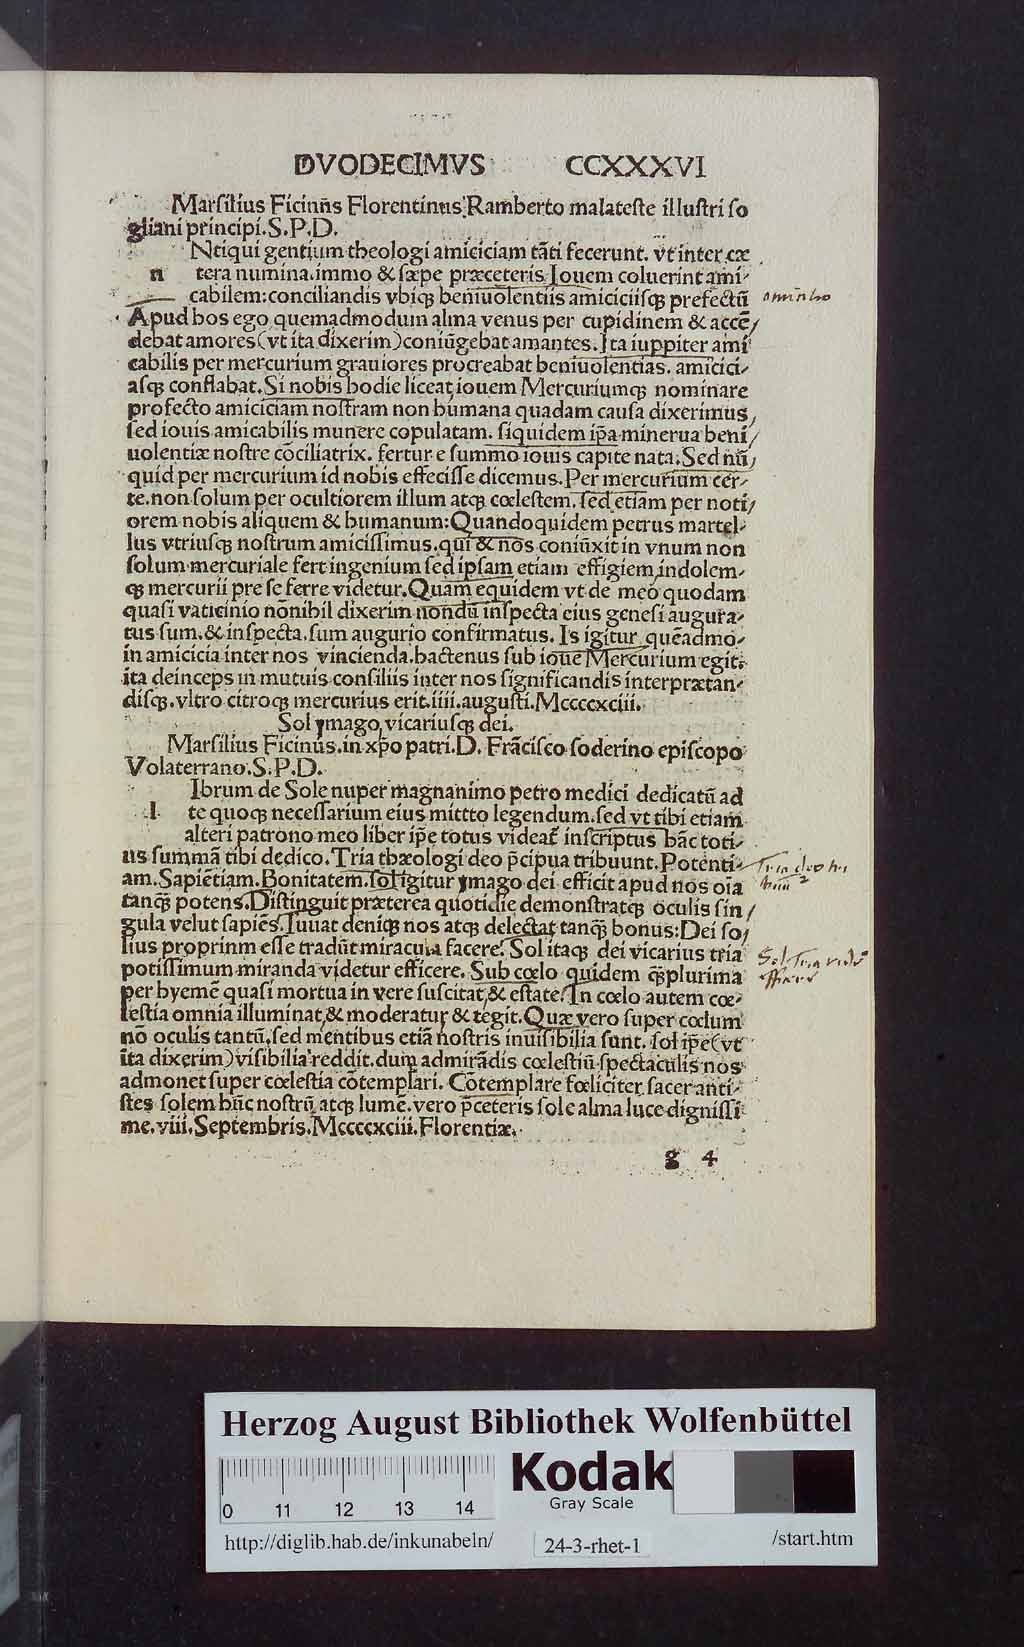 DVODECIMVS CCXXXVI
Marsilius Ficinus Florentinus Ramberto malateste illustri so
gliani principi. S.P.D.
Ntiqui gentium theologi amiciciam tāti fecerunt. vt inter cæ
n tera numina.immo & sæpe præceteris Iouem coluerint ami-
cabilem:conciliandis vbiqȝ beniuolentiis amiciciisqȝ prefectū
Apud hos ego quemadmodum alma venus per cupidinem & accē/
debat amores(vt ita dixerim)coniūgebat amantes.Ita iuppiter ami
cabilis per mercurium grauiores procreabat beniuolentias. amicici-
asqȝ conflabat.Si nobis hodie liceat iouem Mercuriumqȝ nominare
profecto amiciciam nostram non humana quadam causa dixerimus,
sed iouis amicabilis munere copulatam. siquidem ip̄a minerua beni/
uolentiæ nostre cōciliatrix. fertur e summo iouis capite nata.Sed nū/
quid per mercurium id nobis effecisse dicemus.Per mercurium cer-
te.non solum per ocultiorem illum atqȝ cœlestem, sed etiam per noti/
orem nobis aliquem & humanum:Quandoquidem petrus martel-
lus vtriusqȝ nostrum amicissimus.qui & nos coniūxit in vnum non
solum mercuriale fert ingenium sed ipsam etiam effigiem indolem-
qȝ mercurii pre se ferre videtur.Quam equidem vt de meo quodam
quasi vaticinio nōnihil dixerim nondū inspecta eius genesi augura-
tus sum.& inspecta.sum augurio confirmatus. Is igitur quēadmo-
in amicicia inter nos vincienda.hactenus sub ioue Mercurium egit.
ita deinceps in mutuis consiliis inter nos significandis interprætan-
disqȝ.vltro citroqȝ mercurius erit.iiii.augusti.Mccccxciii.
Sol ymago vicariusqȝ dei.
Marsilius Ficinus.in xp̄o patri.D. Frācisco soderino episcopo
Volaterrano.S.P.D.
Ibrum de Sole nuper magnanimo petro medici dedicatū ad
l te quoqȝ necessarium eius mittto legendum.sed vt tibi etiam
alteri patrono meo liber ip̄e totus videat̄ inscriptus hāc toti-
us summā tibi dedico.Tria thæologi deo p̄cipua tribuunt.Potenti-
am.Sapiētiam.Bonitatem.sol igitur ymago dei efficit apud nos oīa
tanqȝ̄ potens.Distinguit præterea quotidie demonstratqȝ oculis sin/
gula velut sapiēs.Iuuat deniqȝ nos atqȝ delectat tanqȝ̄ bonus:Dei so/
lius proprinm esse tradūt miracula facere.Sol itaqȝ dei vicarius tria
potissimum miranda videtur efficere. Sub cœlo quidem qȝ̄plurima
per hyemē quasi mortua in vere suscitat,& estate.In cœlo autem cœ-
lestia omnia illuminat,& moderatur & tegit.Quæ vero super cœlum
nō oculis tantū.sed mentibus etiā nostris inuisibilia sunt. sol ip̄e(vt
ita dixerim)visibilia reddit.dum admirādis cœlestiū spectaculis nos
admonet super cœlestia cōtemplari. Cōtemplare fœliciter sacer anti-
stes solem hūc nostrū atqȝ lumē. vero p̄ceteris sole alma luce dignissi
me.viii.Septembris.Mccccxciii.Florentiæ.
g 4
Tria deo
Sol Tria
Herzog August Bibliothek Wolfenbüttel
0 11 12 13 14
Kodak
Gray Scale
http://diglib.hab.de/inkunabeln/ 24-3-rhet-1 /start.htm